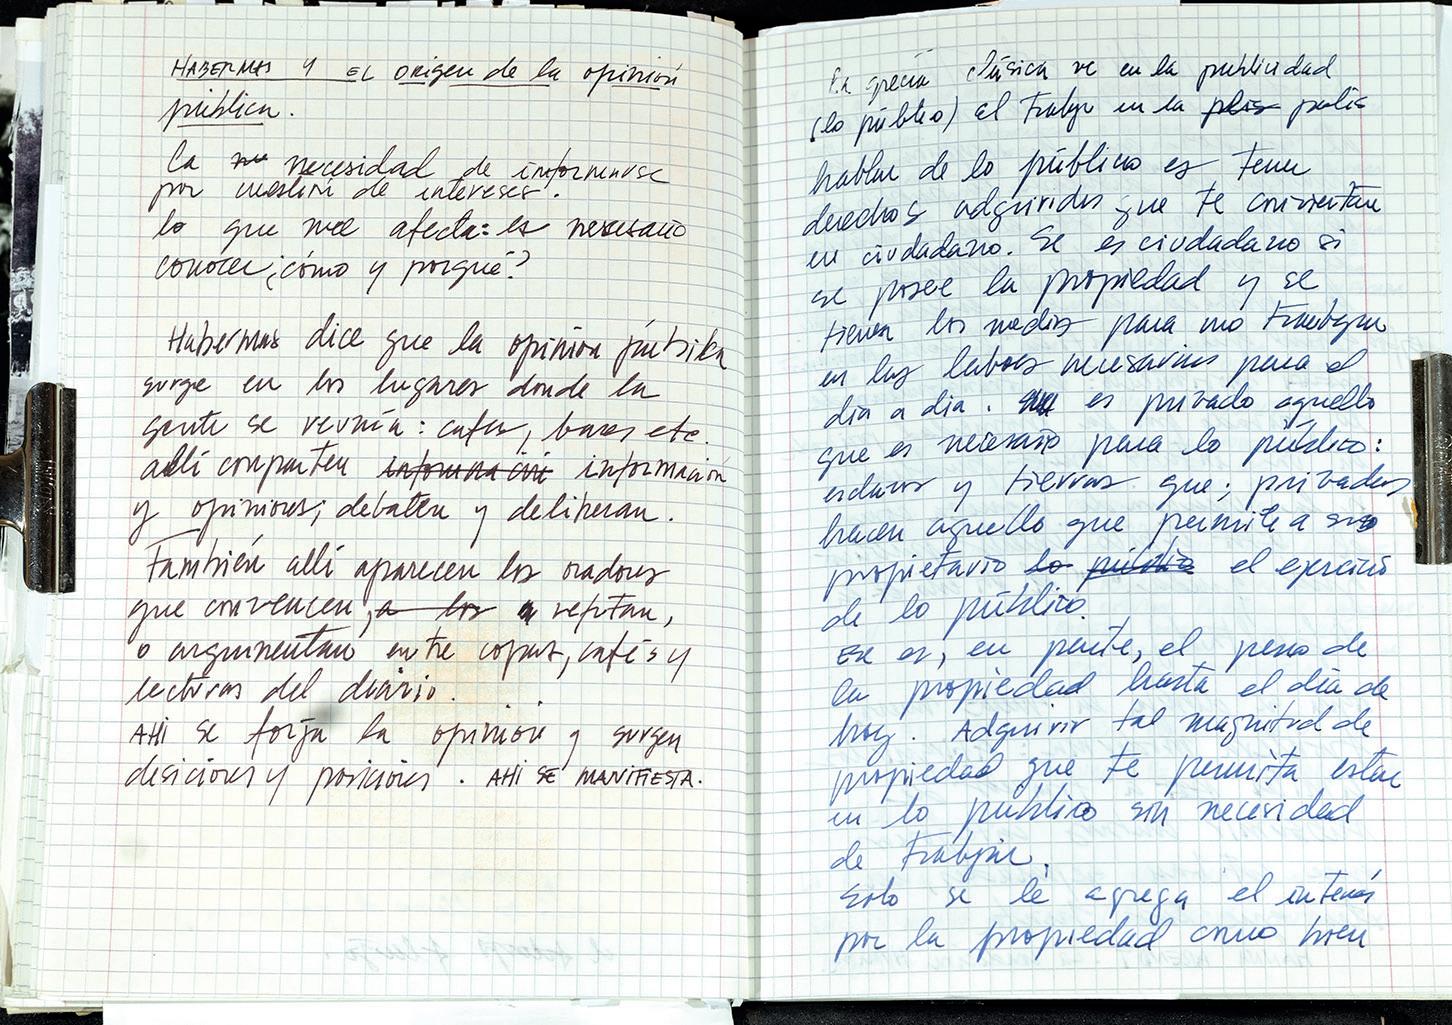 HABERMAS Y EL origen de la opinión
pública.
La necesidad de informarse
por cuestión de intereses.
lo que me afecta: es necesario
conocer ¿cómo y porqué?
Habermas dice que la opinión pública
surge en los lugares donde la
gente se reunía: cafes, bares etc.
allí comparten información información
y opiniones; debaten y deliberan.
También allí aparecen los oradores
que convencen, a los refutan,
o argumentan entre copas, cafés y
lecturas del diario.
AHI se forja la opinión y surgen
desiciones y posiciones. AHI SE MANIFIESTA.
La grecia clásica ve en la publicidad
(lo público) el trabajo en la polis
hablar de lo público es tener
derechos adquiridos que te convierten
en ciudadano. Se es ciudadano si
se posee la propiedad y se
tienen los medios para no trabajar
en las labores necesarias para el
día a día. es privado aquello
que es necesario para lo público:
esclavos y tierras que; privados
hacen aquello que permite a su
propietario lo público el ejercicio
de lo público.
Ese es, en parte, el peso de
la propiedad hasta el día de
hoy. Adquirir tal magnitud de
propiedad que te permita estar
en lo publico sin necesidad
de trabajar.
Solo se le agrega el interés
por la propiedad como bien